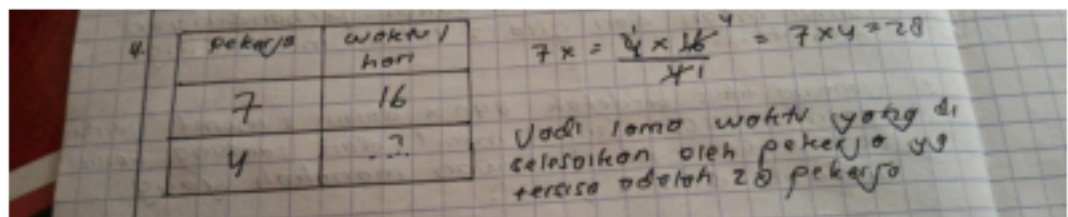 4.
pekerja | waktu/hari
7 | 16
4 | ...?
7x = 4 x 16 4 / 4 1 = 7x4 = 28
Jadi lama waktu yang di
selesaikan oleh pekerja yg
tersisa adalah 28 pekerja